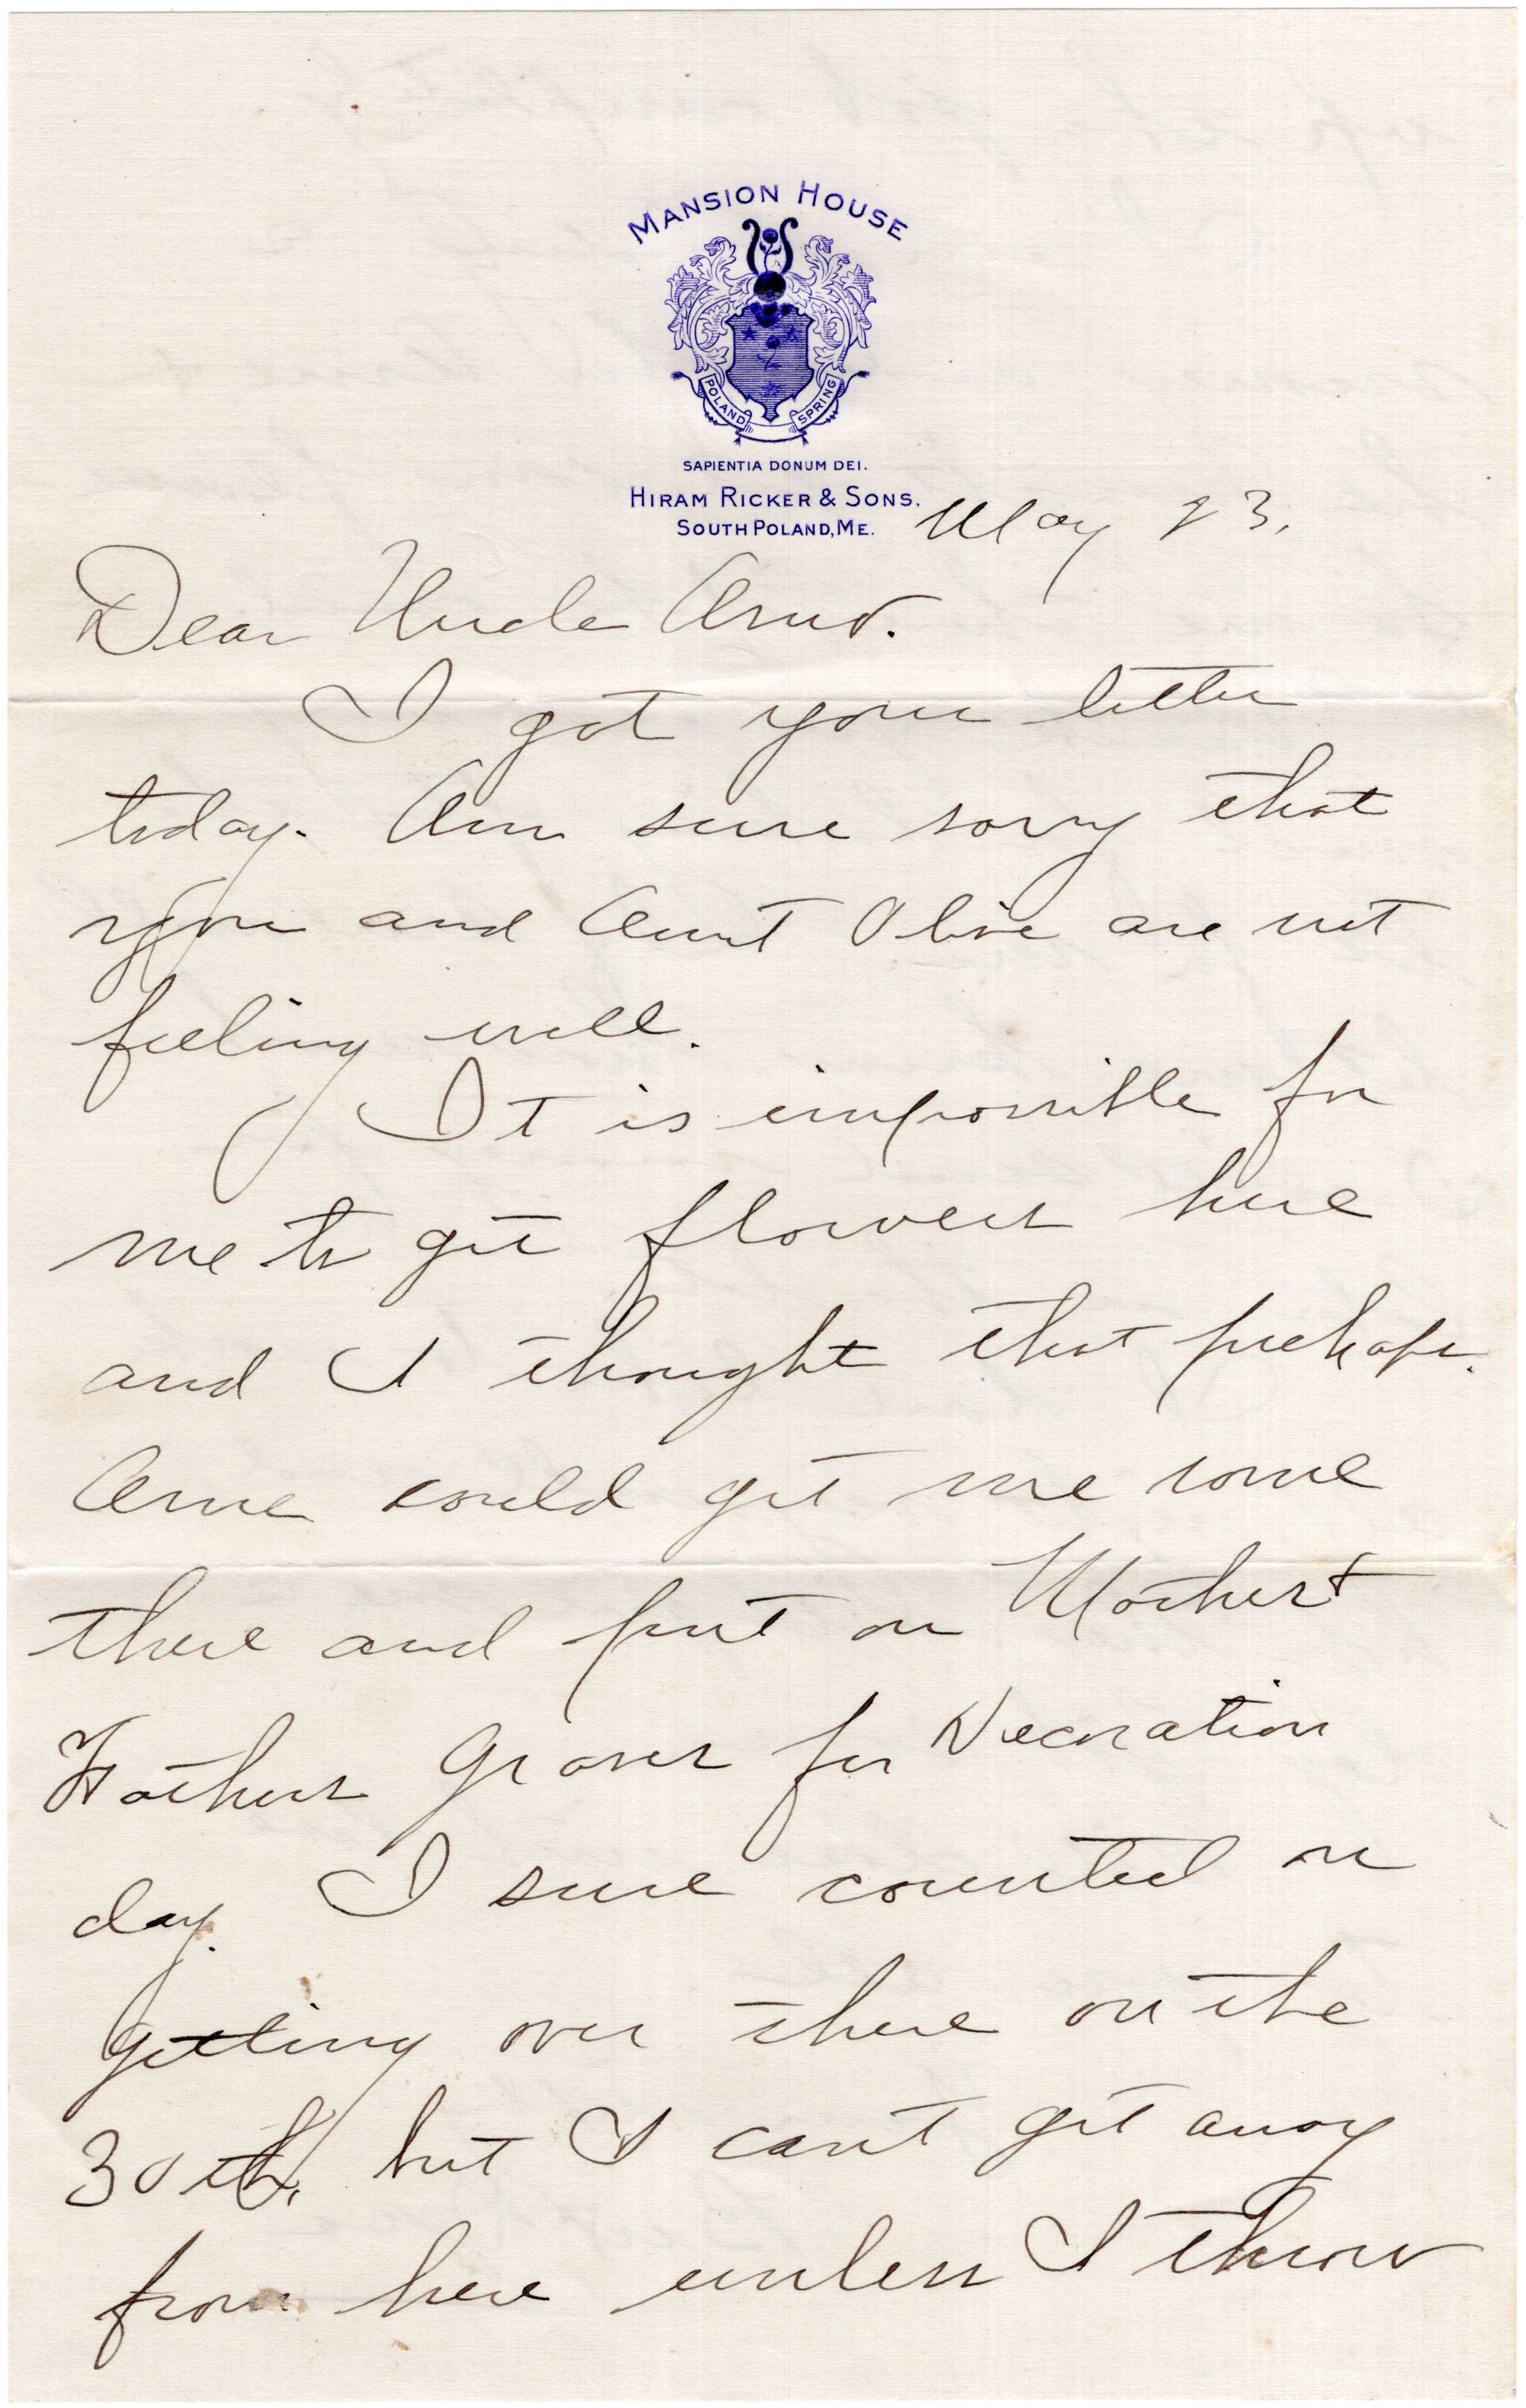 MANSION HOUSE
POLAND SPRING
SAPIENTIA DONUM DEI.
HIRAM RICKER & SONS.
SOUTH POLAND, ME.
May 23.
Dear Uncle
I got your letter
today. Am sure sorry that
you and Aunt Olive are not
feeling well.
It is impossible for
me to get flowers here
and I thought that perhaps
Arne could get me some
there and put on Mothers +
Fathers Graves for Decoration
day. I sure counted on
getting over there on the
30th, but I cant get away
from here unless I throw